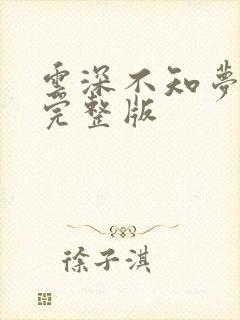 雲深不知夢
完整版
徐子淇